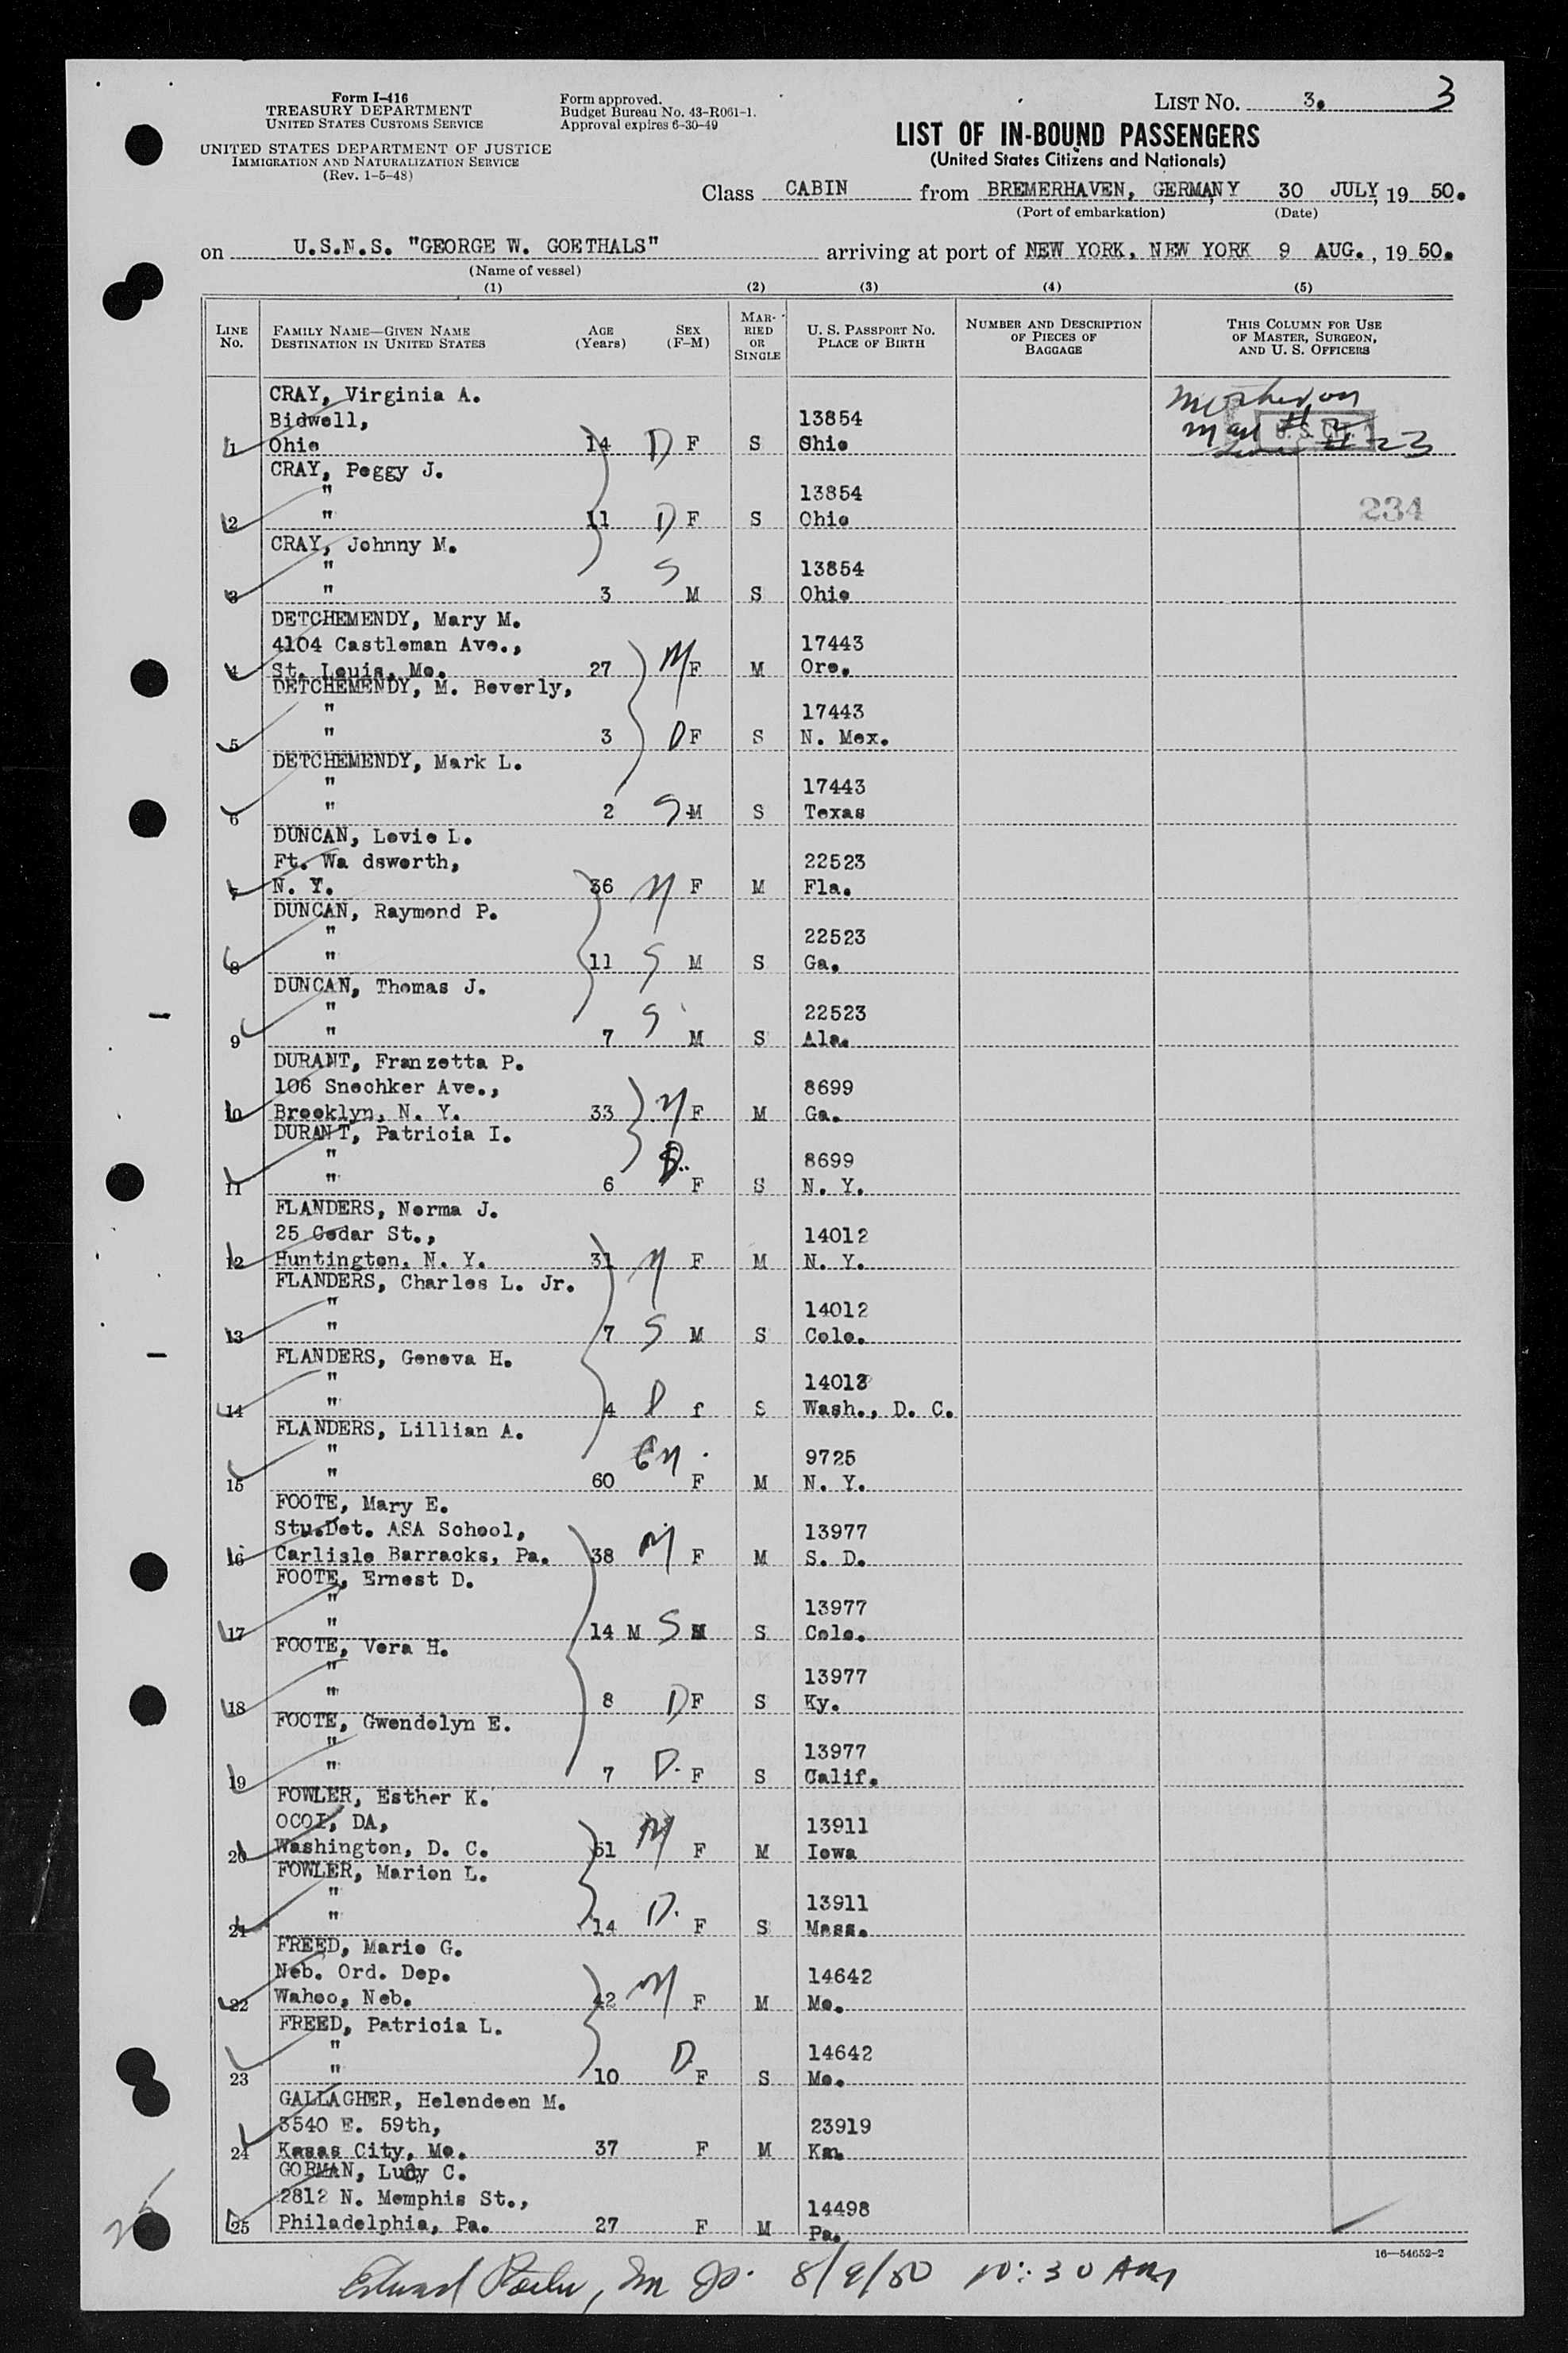 Form I-416
TREASURY DEPARTMENT
UNITED STATES CUSTOMS SERVICE
UNITED STATES DEPARTMENT OF JUSTICE
IMMIGRATION AND NATURALIZATION SERVICE
(Rev. 1-5-48)
Form approved.
Budget Bureau No. 43-R061-1.
Approval expires 6-30-49
LIST NO. 3. 3
LIST OF IN-BOUND PASSENGERS
(United States Citizens and Nationals)
Class CABIN from BREMERHAVEN, GERMANY 30 JULY, 19 50.
(Port of embarkation) (Date)
on U.S.N.S. "GEORGE W. GOETHALS" arriving at port of NEW YORK, NEW YORK 9 AUG., 19 50.
(Name of vessel)
(1) (2) (3) (4) (5)
LINE No. FAMILY NAME—GIVEN NAME DESTINATION IN UNITED STATES AGE (Years) SEX (F-M) MARRIED OR SINGLE U. S. PASSPORT NO. PLACE OF BIRTH NUMBER AND DESCRIPTION OF PIECES OF BAGGAGE THIS COLUMN FOR USE OF MASTER, SURGEON, AND U. S. OFFICERS
CRAY, Virginia A.
Bidwell, 13854
1 Ohio 14 D F S Ohio
CRAY, Peggy J.
" 13854
2 " 11 D F S Ohio 234
CRAY, Johnny M.
" 13854
3 " 3 S M S Ohio
DETCHEMENDY, Mary M.
4104 Castleman Ave., 17443
4 St. Louis, Mo. 27 M F M Ore.
DETCHEMENDY, M. Beverly,
" 17443
5 " 3 D F S N. Mex.
DETCHEMENDY, Mark L.
" 17443
6 " 2 S M S Texas
DUNCAN, Lovie L.
Ft. Wa dsworth, 22523
7 N. Y. 36 M F M Fla.
DUNCAN, Raymond P.
" 22523
8 " 11 S M S Ga.
DUNCAN, Thomas J.
" 22523
9 " 7 S M S Ala.
DURANT, Franzetta P.
106 Snechker Ave., 8699
10 Brooklyn, N. Y. 33 M F M Ga.
DURANT, Patricia I.
" 8699
11 " 6 D. F S N. Y.
FLANDERS, Norma J.
25 Cedar St., 14012
12 Huntington, N. Y. 31 M F M N. Y.
FLANDERS, Charles L. Jr.
" 14012
13 " 7 S M S Colo.
FLANDERS, Geneva H.
" 14012
14 " 4 D f S Wash., D. C.
FLANDERS, Lillian A.
" 9725
15 " 60 F M N. Y.
FOOTE, Mary E.
Stu.Det. ASA School, 13977
16 Carlisle Barracks, Pa. 38 M F M S. D.
FOOTE, Ernest D.
" 13977
17 " 14 M S M S Colo.
FOOTE, Vera H.
" 13977
18 " 8 D F S Ky.
FOOTE, Gwendolyn E.
" 13977
19 " 7 D. F S Calif.
FOWLER, Esther K.
OCOI, DA, 13911
20 Washington, D. C. 51 M F M Iowa
FOWLER, Marion L.
" 13911
21 " 14 D. F S Mass.
FREED, Marie G.
Neb. Ord. Dep. 14642
22 Wahoo, Neb. 42 M F M Mo.
FREED, Patricia L.
" 14642
23 " 10 D F S Mo.
GALLAGHER, Helendeen M.
3540 E. 59th, 23919
24 Kasas City, Mo. 37 F M Kan.
GORMAN, Lucy C.
2812 N. Memphis St., 14498
25 Philadelphia, Pa. 27 F M Pa.
16—54652-2
8/9/50 10:30 AM